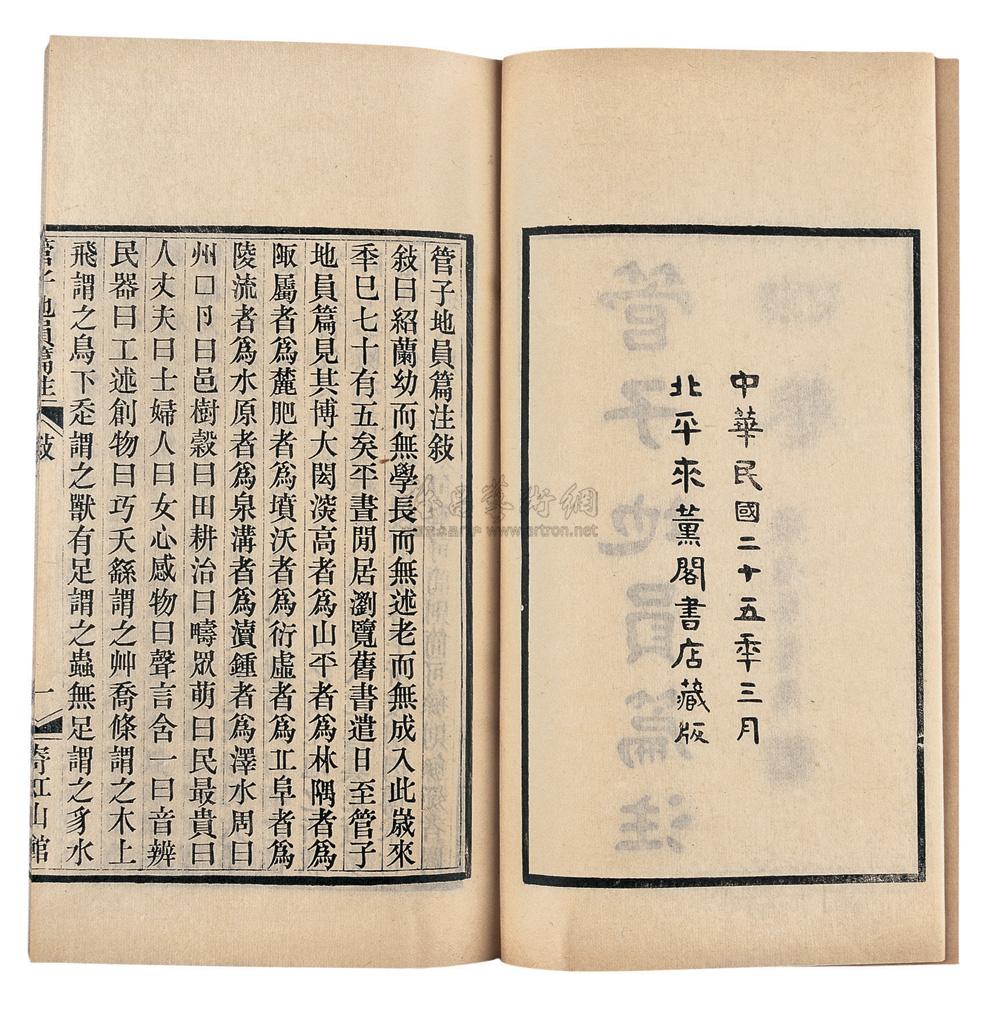 中華民國二十五年三月
北平來薰閣書店藏版
管子地員篇注
管子地員篇注敍
敍曰紹蘭幼而無學長而無述老而無成入此歲來
秊巳七十有五矣平晝閒居瀏覽舊書遣日至管子
地員篇見其博大閎深高者爲山平者爲林隅者爲
陬屬者爲麓肥者爲墳沃者爲衍虛者爲丠阜者爲
陵流者爲水原者爲泉溝者爲瀆鍾者爲澤水周曰
州口卪曰邑樹穀曰田耕治曰疇眾萌曰民最貴曰
人丈夫曰士婦人曰女心感物曰聲言含一曰音辨
民器曰工述創物曰巧夭繇謂之艸喬條謂之木上
飛謂之鳥下走謂之獸有足謂之蟲無足謂之豸水
管子地員篇注 敍 一 寄虹山館
www.artron.net